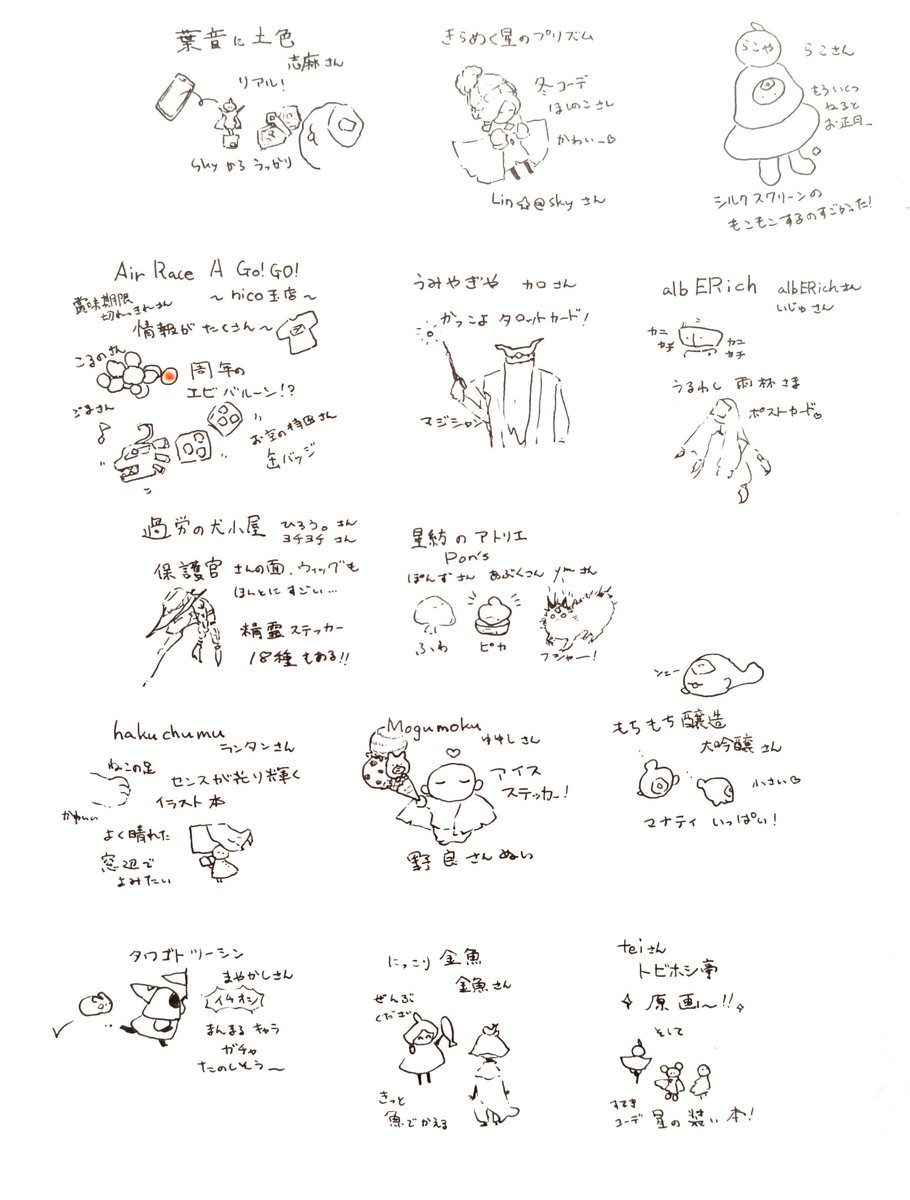 葉音に土色
志麻さん
リアル!
Sky めろ うっかり
きらめく星のプリズム
冬コーデ
ほしのこさん
かわい〜♡
Lin☆@sky さん
らこや
らこさん
もういくつ
ねると
お正月〜
シルクスクリーンの
もこもこするのすごかった!
Air Race A Go! GO!
〜nico玉店〜
賞味期限
切れっきれさん
情報がたくさん〜
こるのさん
周年の
エビバルーン!?
ごまさん
お空の特田さん
缶バッジ
うみやぎや カロさん
かっこよ タロットカード!
マジシャン
albERich albERichさん
いじゅさん
カニ
カチ
カニ
カチ
うるわし 雨林さま
ポストカード♡
過労の犬小屋 ひろう。さん
ヨチヨチさん
保護官 さんの面、ウィッグも
ほんとにすごい…
精霊ステッカー
18種もある!!
星紡のアトリエ
Pon's
ぽんずさん あぶくさん ymさん
ふわ
ピカ
フシャー!
hakuchumu
ランタンさん
ねこの足
かわいい
センスが光り輝く
イラスト本
よく晴れた
窓辺で
よみたい
Mogumoku
ゆゆしさん
アイス
ステッカー!
野良さんぬい
シェー
もちもち醸造
大吟醸さん
小さい♡
マナティ いっぱい!
タワゴトツーシン
まやかしさん
イチオシ
まんまるキャラ
ガチャ
たのしそう〜
にっこり金魚
金魚さん
ぜんぶ
くださ
きっと
魚でかえる
teiさん
トビホシ亭
原画〜!!
そして
すてき
コーデ 星の装い本!